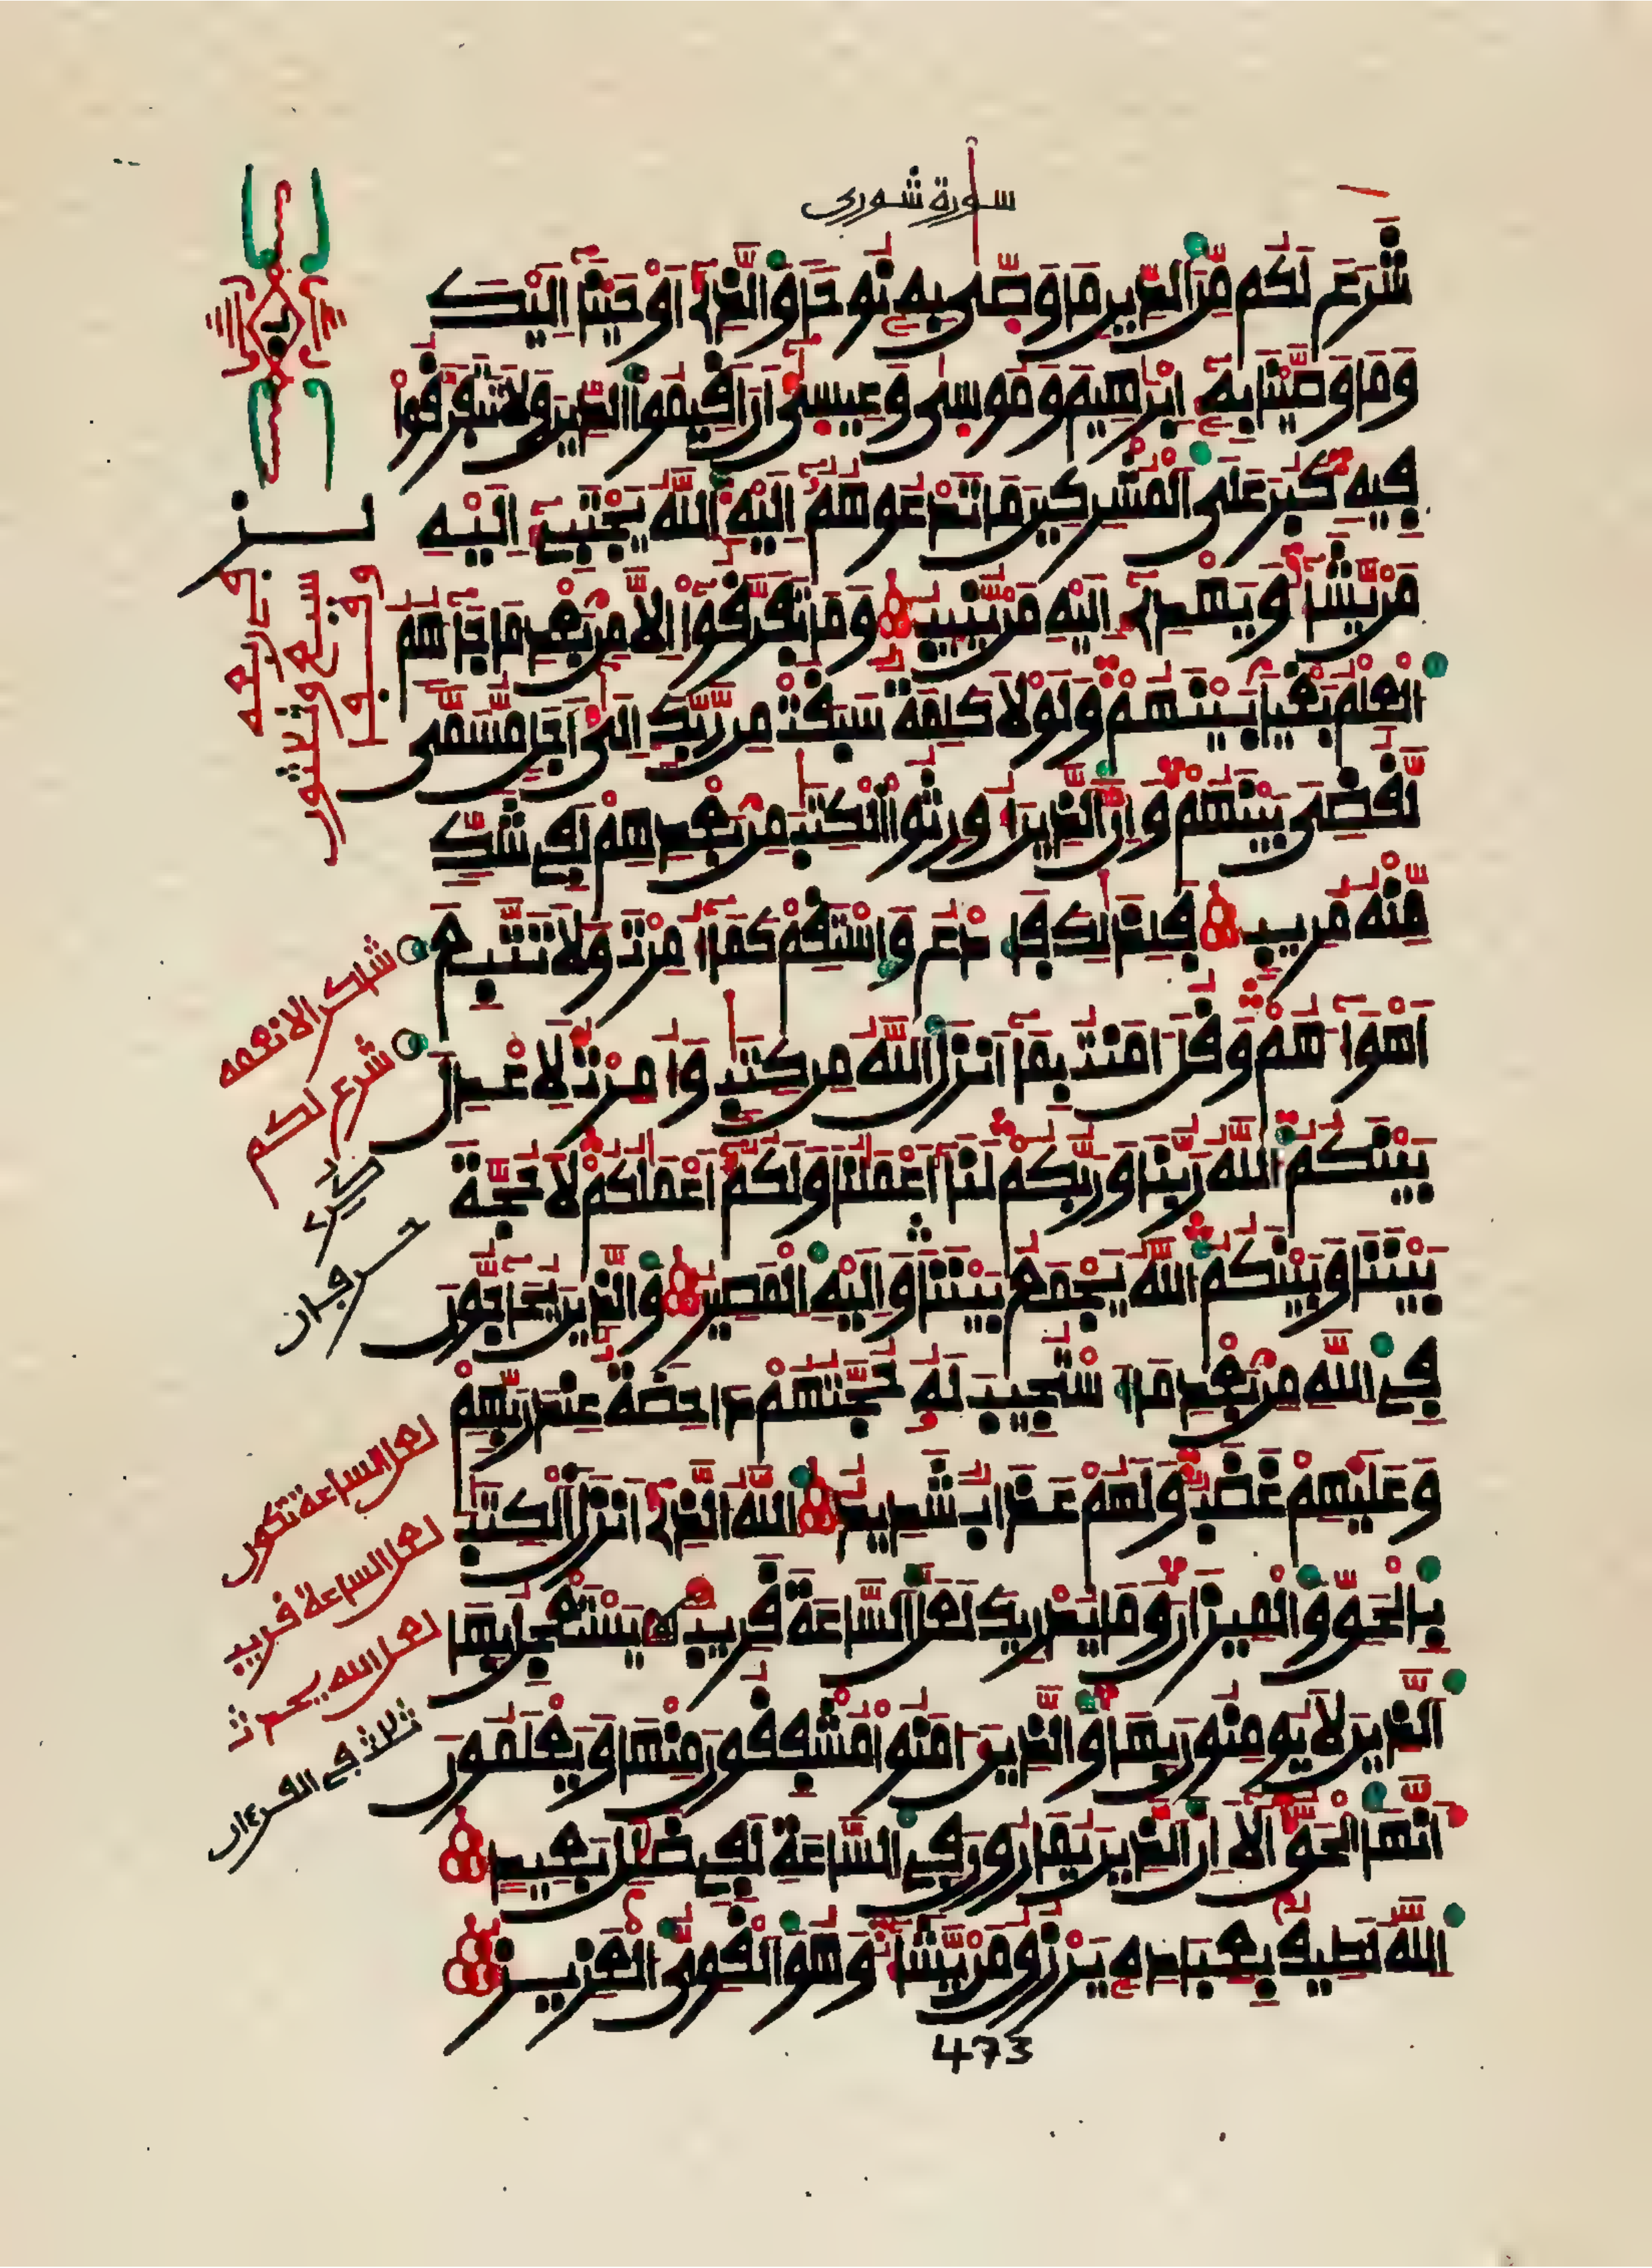 سورة شورى
شَرَعَ لَكُم مِّنَ الدِّينِ مَا وَصّٰى بِهِ نُوحًا وَالَّذِے أَوْحَيْنَا إِلَيْكَ
وَمَا وَصَّيْنَا بِهِ إِبْرٰهِيمَ وَمُوسٰى وَعِيسٰى أَنْ أَقِيمُوا الدِّينَ وَلَا تَتَفَرَّقُوا
فِيهِ كَبُرَ عَلَى الْمُشْرِكِينَ مَا تَدْعُوهُمْ إِلَيْهِ اللَّهُ يَجْتَبِے إِلَيْهِ
مَنْ يَّشَاءُ وَيَهْدِے إِلَيْهِ مَنْ يُّنِيبُ وَمَا تَفَرَّقُوا إِلَّا مِنْ بَعْدِ مَا جَاءَهُمُ
الْعِلْمُ بَغْيًا بَيْنَهُمْ وَلَوْلَا كَلِمَةٌ سَبَقَتْ مِن رَّبِّكَ إِلٰى أَجَلٍ مُّسَمًّى
لَقُضِيَ بَيْنَهُمْ وَإِنَّ الَّذِينَ أُورِثُوا الْكِتٰبَ مِنْ بَعْدِهِمْ لَفِے شَكٍّ
مِّنْهُ مُرِيبٍ فَلِذٰلِكَ فَادْعُ وَاسْتَقِمْ كَمَا أُمِرْتَ وَلَا تَتَّبِعْ
أَهْوَاءَهُمْ وَقُلْ ءَامَنْتُ بِمَا أَنْزَلَ اللَّهُ مِنْ كِتٰبٍ وَأُمِرْتُ لِأَعْدِلَ
بَيْنَكُمُ اللَّهُ رَبُّنَا وَرَبُّكُمْ لَنَا أَعْمٰلُنَا وَلَكُمْ أَعْمٰلُكُمْ لَا حُجَّةَ
بَيْنَنَا وَبَيْنَكُمُ اللَّهُ يَجْمَعُ بَيْنَنَا وَإِلَيْهِ الْمَصِيرُ وَالَّذِينَ يُحَاجُّونَ
فِے اللَّهِ مِنْ بَعْدِ مَا اسْتُجِيبَ لَهُ حُجَّتُهُمْ دَاحِضَةٌ عِنْدَ رَبِّهِمْ
وَعَلَيْهِمْ غَضَبٌ وَلَهُمْ عَذَابٌ شَدِيدٌ اللَّهُ الَّذِے أَنْزَلَ الْكِتٰبَ
بِالْحَقِّ وَالْمِيزَانَ وَمَا يُدْرِيكَ لَعَلَّ السَّاعَةَ قَرِيبٌ يَسْتَعْجِلُ بِهَا
الَّذِينَ لَا يُومِنُونَ بِهَا وَالَّذِينَ ءَامَنُوا مُشْفِقُونَ مِنْهَا وَيَعْلَمُونَ
أَنَّهَا الْحَقُّ أَلَا إِنَّ الَّذِينَ يُمَارُونَ فِے السَّاعَةِ لَفِے ضَلٰلٍ بَعِيدٍ
اللَّهُ لَطِيفٌ بِعِبَادِهِ يَرْزُقُ مَنْ يَّشَاءُ وَهُوَ الْقَوِيُّ الْعَزِيزُ
شاكرا لانعمه
شرع لكم
حرفان
لعل الساعة تكون
لعل الساعة قريب
لعل الله يحدث
ثلاث في القرءان
473